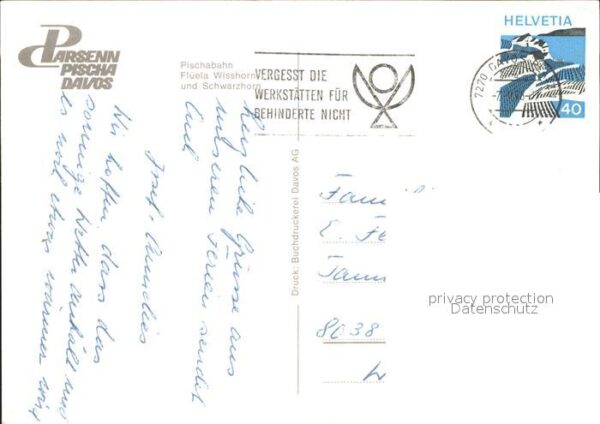 PARSENN
PISCHA
DAVOS
Pischabahn
Flüela Wisshorn
und Schwarzhorn
VERGESST DIE
WERKSTÄTTEN FÜR
BEHINDERTE NICHT
HELVETIA
7270 DAVOS
40
Herzliche Grüsse aus
unseren Ferien sendet
Euch
Josef, Annelies
Wir hoffen dass das
sonnige Wetter anhält und
es noch etwas wärmer wird
Druck: Buchdruckerei Davos AG
Fami
E. Fe
8038
privacy protection
Datenschutz